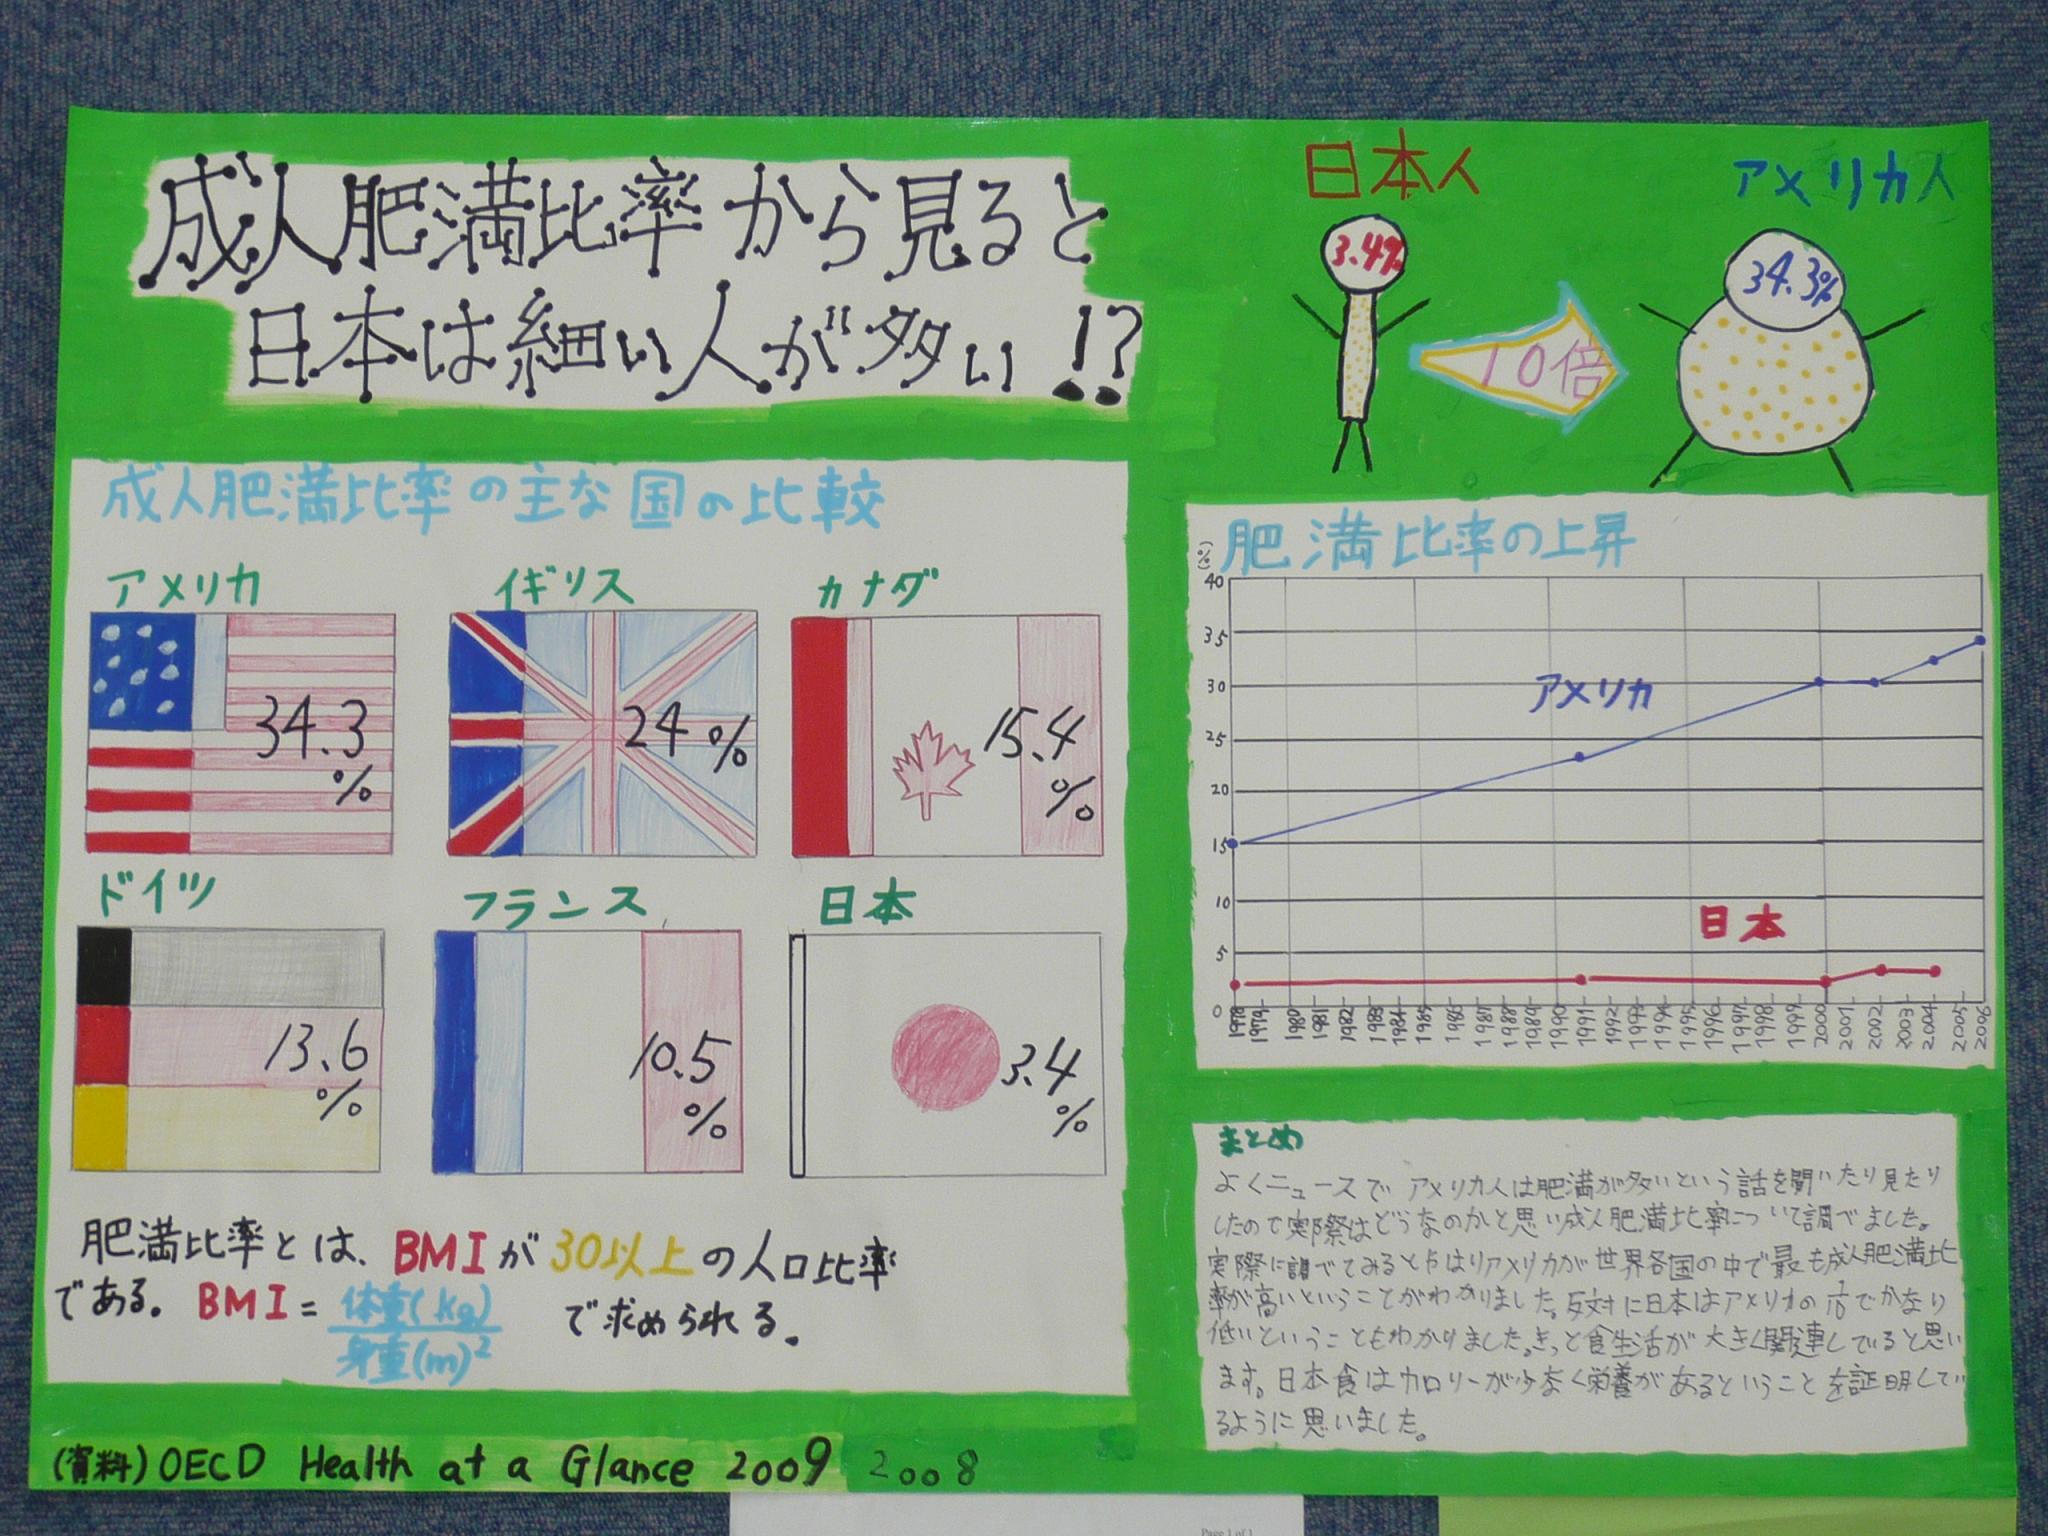 成人肥満比率から見ると
日本は細い人が多い!?
日本人
アメリカ人
3.4%
10倍
34.3%
成人肥満比率の主な国の比較
アメリカ
34.3
%
イギリス
24%
カナダ
15.4
%
ドイツ
13.6
%
フランス
10.5
%
日本
3.4
%
肥満比率とは、BMIが30以上の人口比率
である。BMI=体重(kg)/身重(m)²で求められる。
(資料)OECD Health at a Glance 2009 2008
肥満比率の上昇
(%)
40
35
30
25
20
15
10
5
0
アメリカ
日本
1978 1979 1980 1981 1982 1983 1984 1985 1986 1987 1988 1989 1990 1991 1992 1993 1994 1995 1996 1997 1998 1999 2000 2001 2002 2003 2004 2005 2006
まとめ
よくニュースでアメリカ人は肥満が多いという話を聞いたり見たり
したので実際はどうなのかと思い成人肥満比率について調べました。
実際に調べてみるとやはりアメリカが世界各国の中で最も成人肥満比
率が高いということがわかりました。反対に日本はアメリカの1/10でかなり
低いということもわかりました。きっと食生活が大きく関連していると思い
ます。日本食はカロリーが少なく栄養があるということを証明してい
るように思いました。
Page 1 of 1